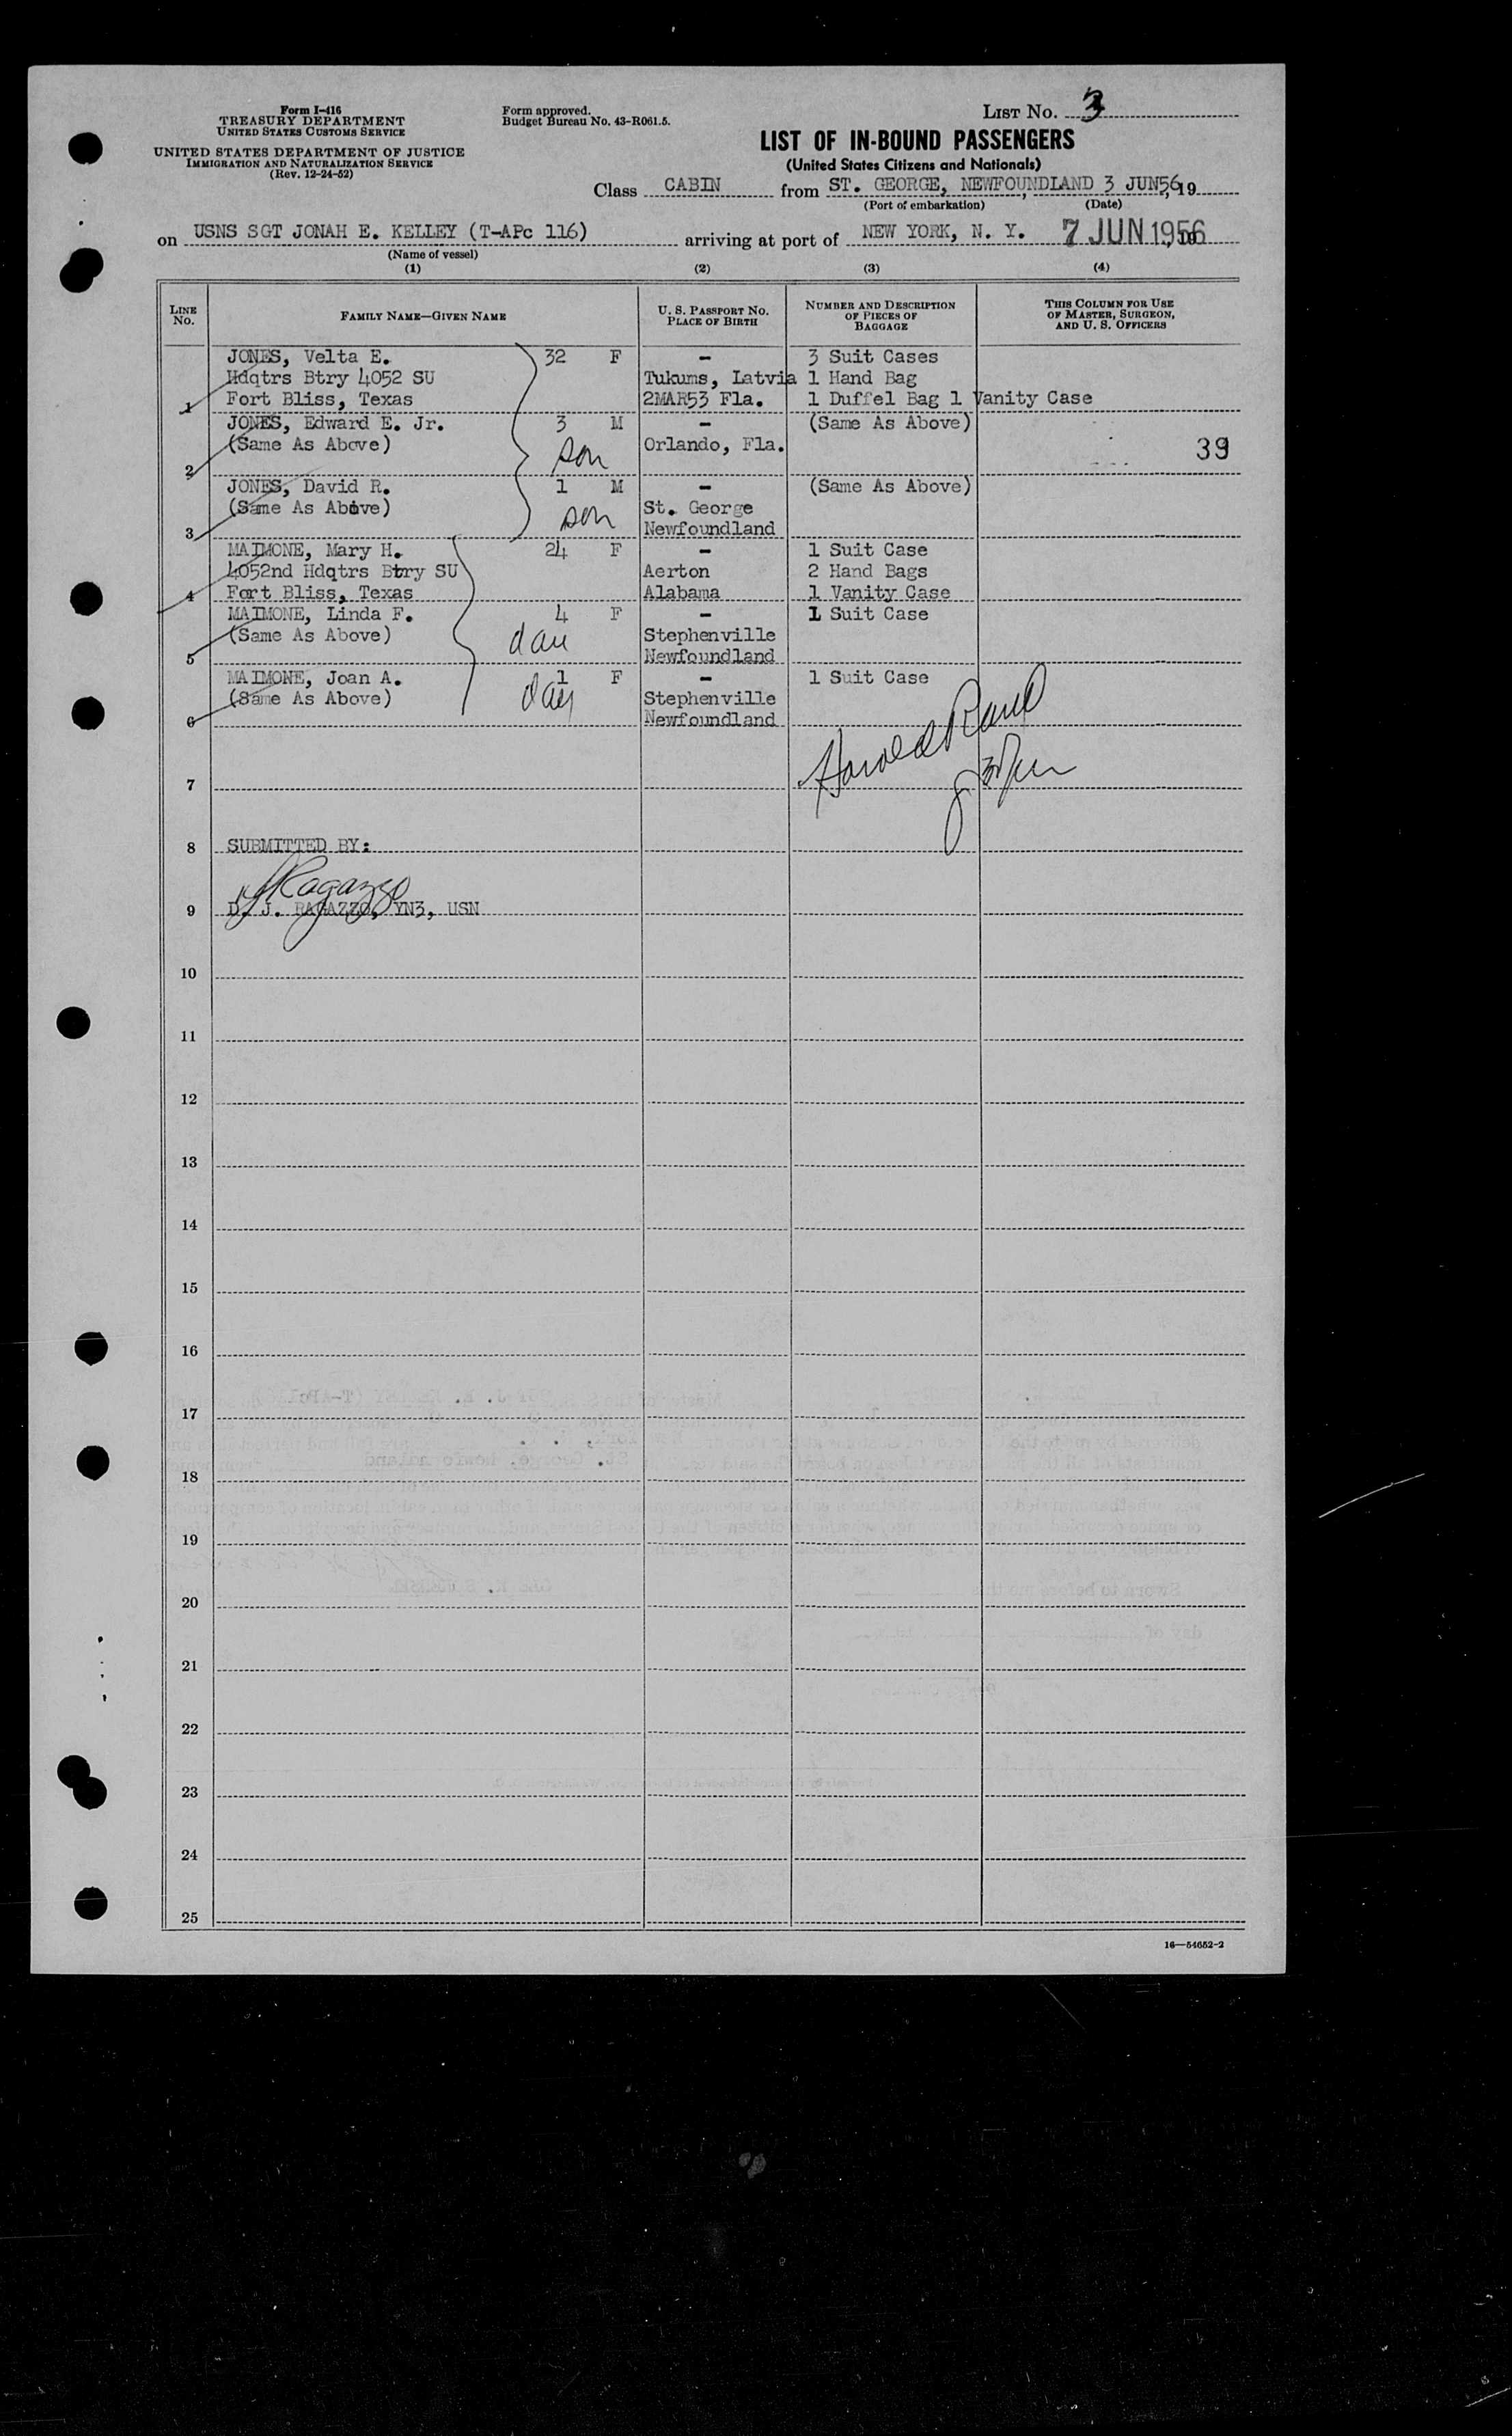 Form I-416
TREASURY DEPARTMENT
UNITED STATES CUSTOMS SERVICE
UNITED STATES DEPARTMENT OF JUSTICE
IMMIGRATION AND NATURALIZATION SERVICE
(Rev. 12-24-52)
Form approved.
Budget Bureau No. 43-R061.5.
LIST No. 3
LIST OF IN-BOUND PASSENGERS
(United States Citizens and Nationals)
Class CABIN from ST. GEORGE, NEWFOUNDLAND, 3 JUN56, 19
(Port of embarkation) (Date)
on USNS SGT JONAH E. KELLEY (T-APc 116) arriving at port of NEW YORK, N. Y. 7 JUN 1956
(Name of vessel)
(1) (2) (3) (4)
LINE No. FAMILY NAME—GIVEN NAME U. S. PASSPORT No. PLACE OF BIRTH NUMBER AND DESCRIPTION OF PIECES OF BAGGAGE THIS COLUMN FOR USE OF MASTER, SURGEON, AND U. S. OFFICERS
JONES, Velta E. 32 F - 3 Suit Cases
Hdqtrs Btry 4052 SU Tukums, Latvia 1 Hand Bag
1 Fort Bliss, Texas 2MAR53 Fla. 1 Duffel Bag 1 Vanity Case
JONES, Edward E. Jr. 3 M - (Same As Above)
(Same As Above) son Orlando, Fla. 39
2
JONES, David R. 1 M - (Same As Above)
(Same As Above) son St. George
3 Newfoundland
MAIMONE, Mary H. 24 F - 1 Suit Case
4052nd Hdqtrs Btry SU Aerton 2 Hand Bags
4 Fort Bliss, Texas Alabama 1 Vanity Case
MAIMONE, Linda F. 4 F - 1 Suit Case
(Same As Above) dau Stephenville
5 Newfoundland
MAIMONE, Joan A. 1 F - 1 Suit Case
(Same As Above) dau Stephenville
6 Newfoundland
Harold
7
8 SUBMITTED BY:
Ragazzo
9 D. J. RAGAZZO, YN3, USN
10
11
12
13
14
15
16
17
18
19
20
21
22
23
24
25
16—54652-2